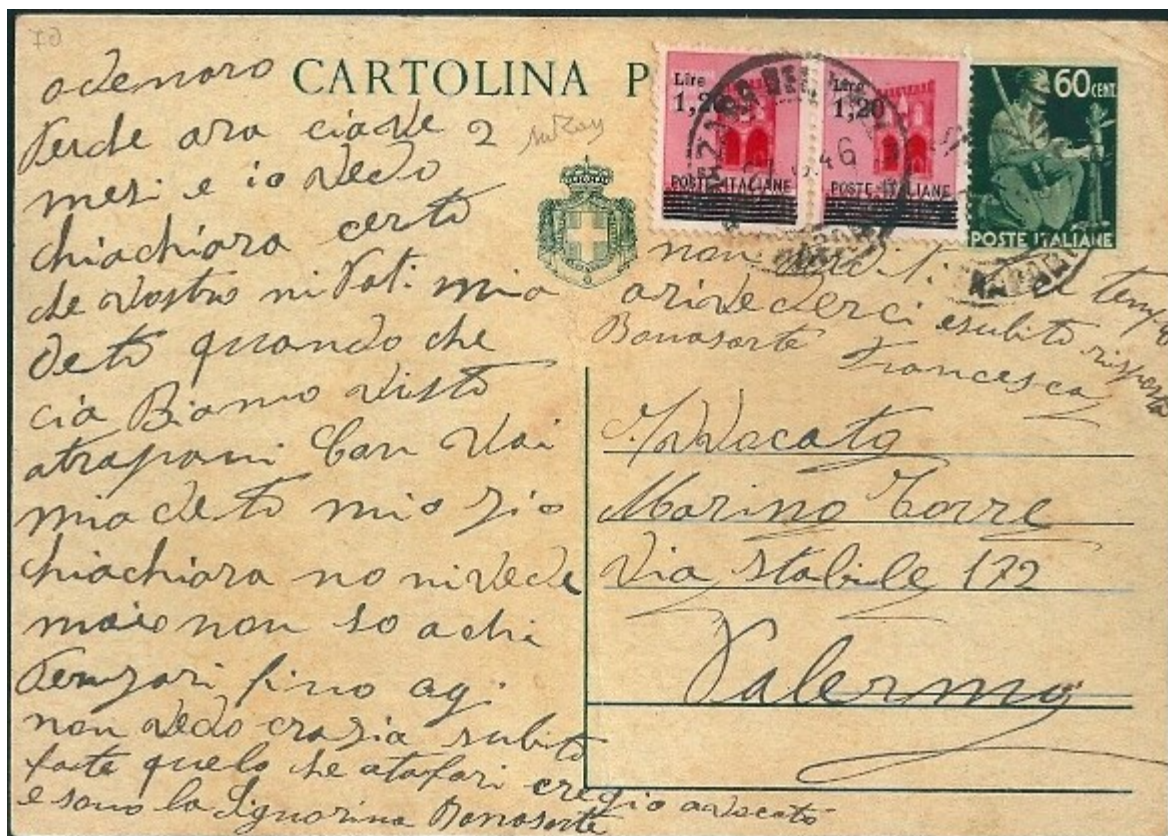 CARTOLINA P
60 CENT.
POSTE ITALIANE
Lire 1,20
POSTE ITALIANE
Lire 1,20
POSTE ITALIANE
odenaro
Perche ora ciave 2
mesi e io vedo
chiachiara certo
che vostro nipoti mia
deto quando che
cia Biamo visto
atrapani Con Voi
mia deto mio zio
chiachiara no ni vede
maio non so achi
Penzari fino ag.
non vedo crazia subito
fate quelo che atafari cregio avocato
e sono la Signorina Bonasorte
non perditi tempo
arivederci esubito risposta
Bonasorte Francesca
Avvocato
Marino Torre
Via Stabile 172
Palermo